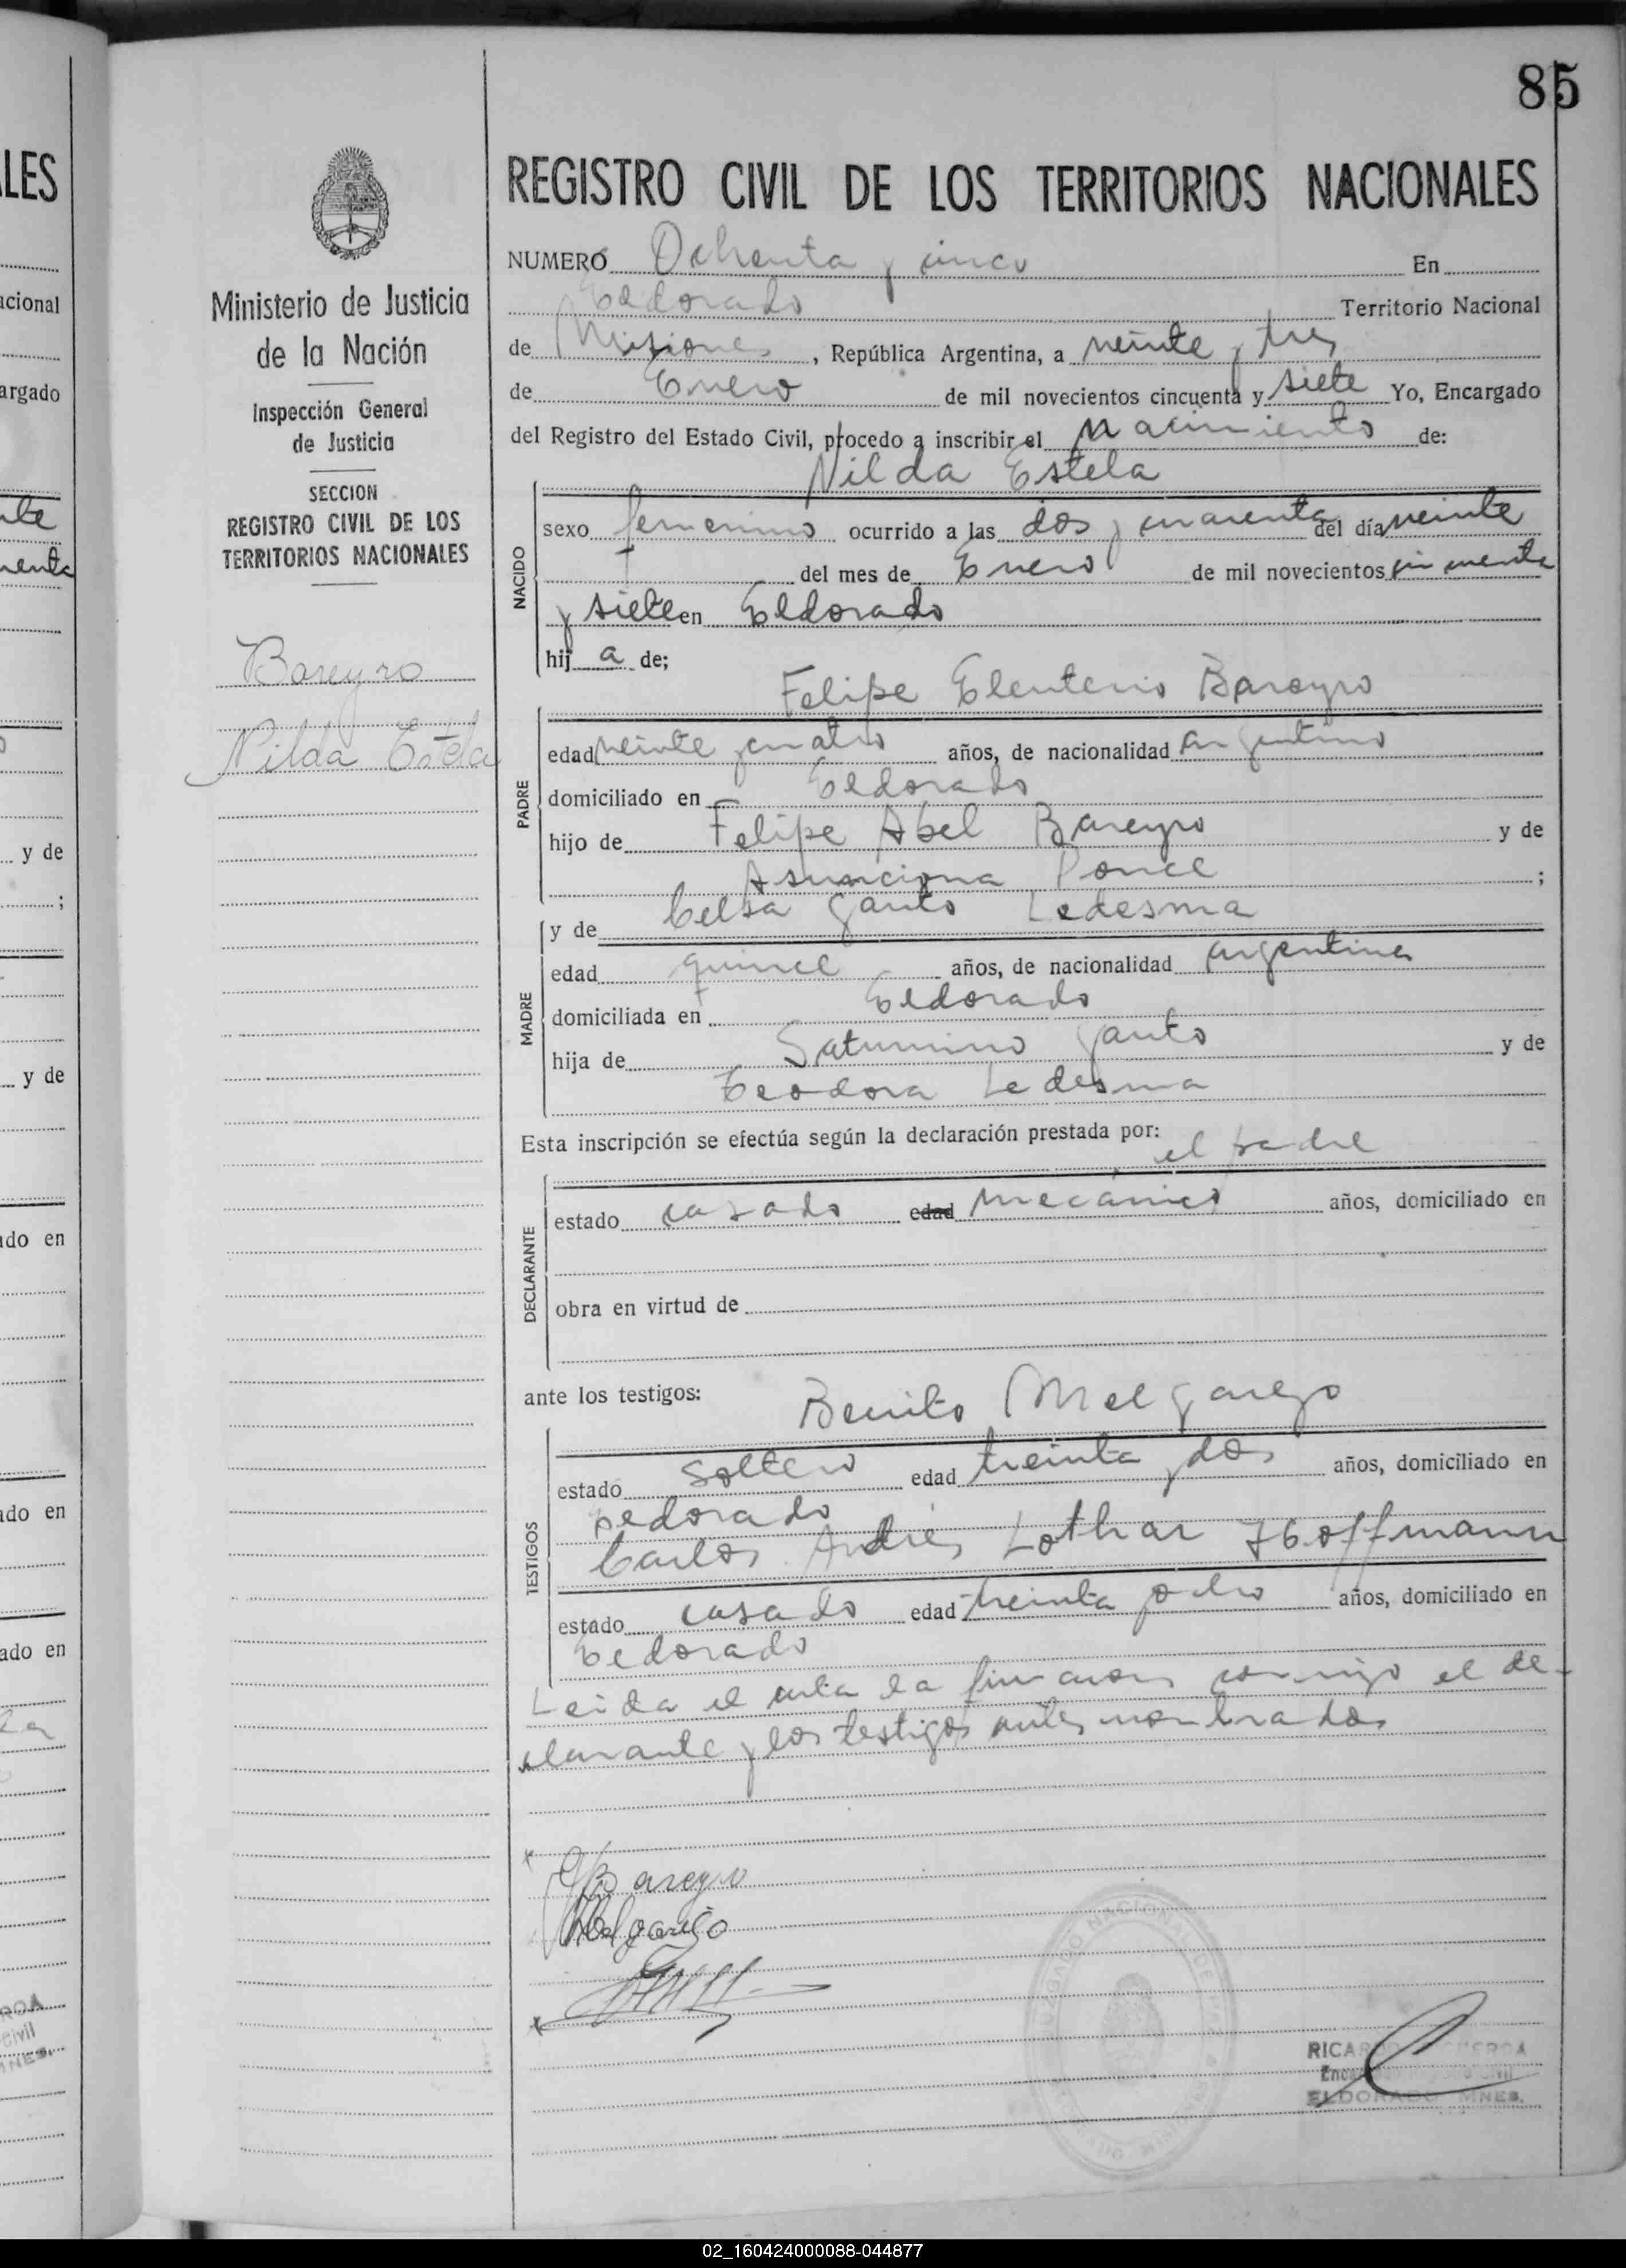 85
REGISTRO CIVIL DE LOS TERRITORIOS NACIONALES
NUMERO Ochenta y cinco En
Eldorado Territorio Nacional
de Misiones, República Argentina, a veinte y tres
de Enero de mil novecientos cincuenta y siete Yo, Encargado
del Registro del Estado Civil, procedo a inscribir el Nacimiento de:
Nilda Estela
NACIDO
sexo femenino ocurrido a las dos y cuarenta del día veinte
del mes de Enero de mil novecientos cincuenta
y siete en Eldorado
hij a de;
Felipe Eleuterio Bareyro
PADRE
edad veinte y cuatro años, de nacionalidad argentino
domiciliado en Eldorado
hijo de Felipe Abel Bareyro y de
Asunciona Ponce ;
MADRE
y de Celsa Ledesma
edad quince años, de nacionalidad argentina
domiciliada en Eldorado
hija de Saturnino y de
Teodora Ledesma
Esta inscripción se efectúa según la declaración prestada por:
el padre
DECLARANTE
estado casado edad mecánico años, domiciliado en
obra en virtud de
ante los testigos: Benito Melgarejo
TESTIGOS
estado soltero edad treinta y dos años, domiciliado en
Eldorado
Carlos Andrés Lothar Hoffmann
estado casado edad treinta y ocho años, domiciliado en
Eldorado
Leida el acta la firmaron conmigo el de-
clarante y los testigos antes nombrados
Bareyro
Melgarejo
RICAR
Enca
ELDORADO MNES.
Ministerio de Justicia
de la Nación
Inspección General
de Justicia
SECCION
REGISTRO CIVIL DE LOS
TERRITORIOS NACIONALES
Bareyro
Nilda Estela
LES
acional
argado
y de
;
y de
ado en
ado en
ado en
02_160424000088-044877